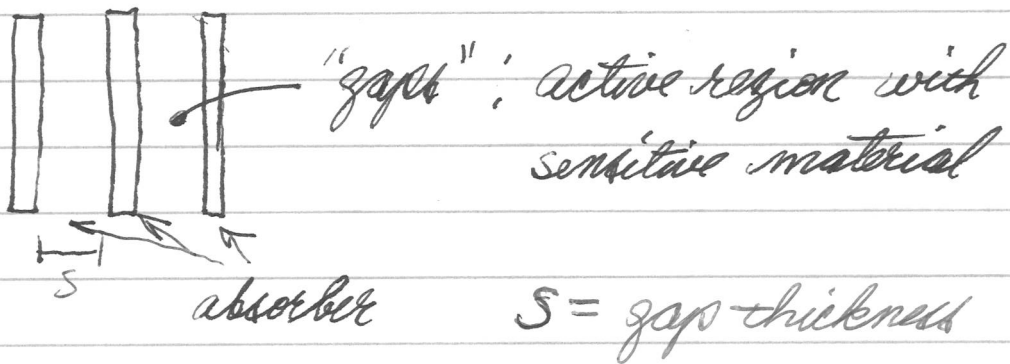 "gaps" : active region with
sensitive material
s
absorber
S = gap thickness